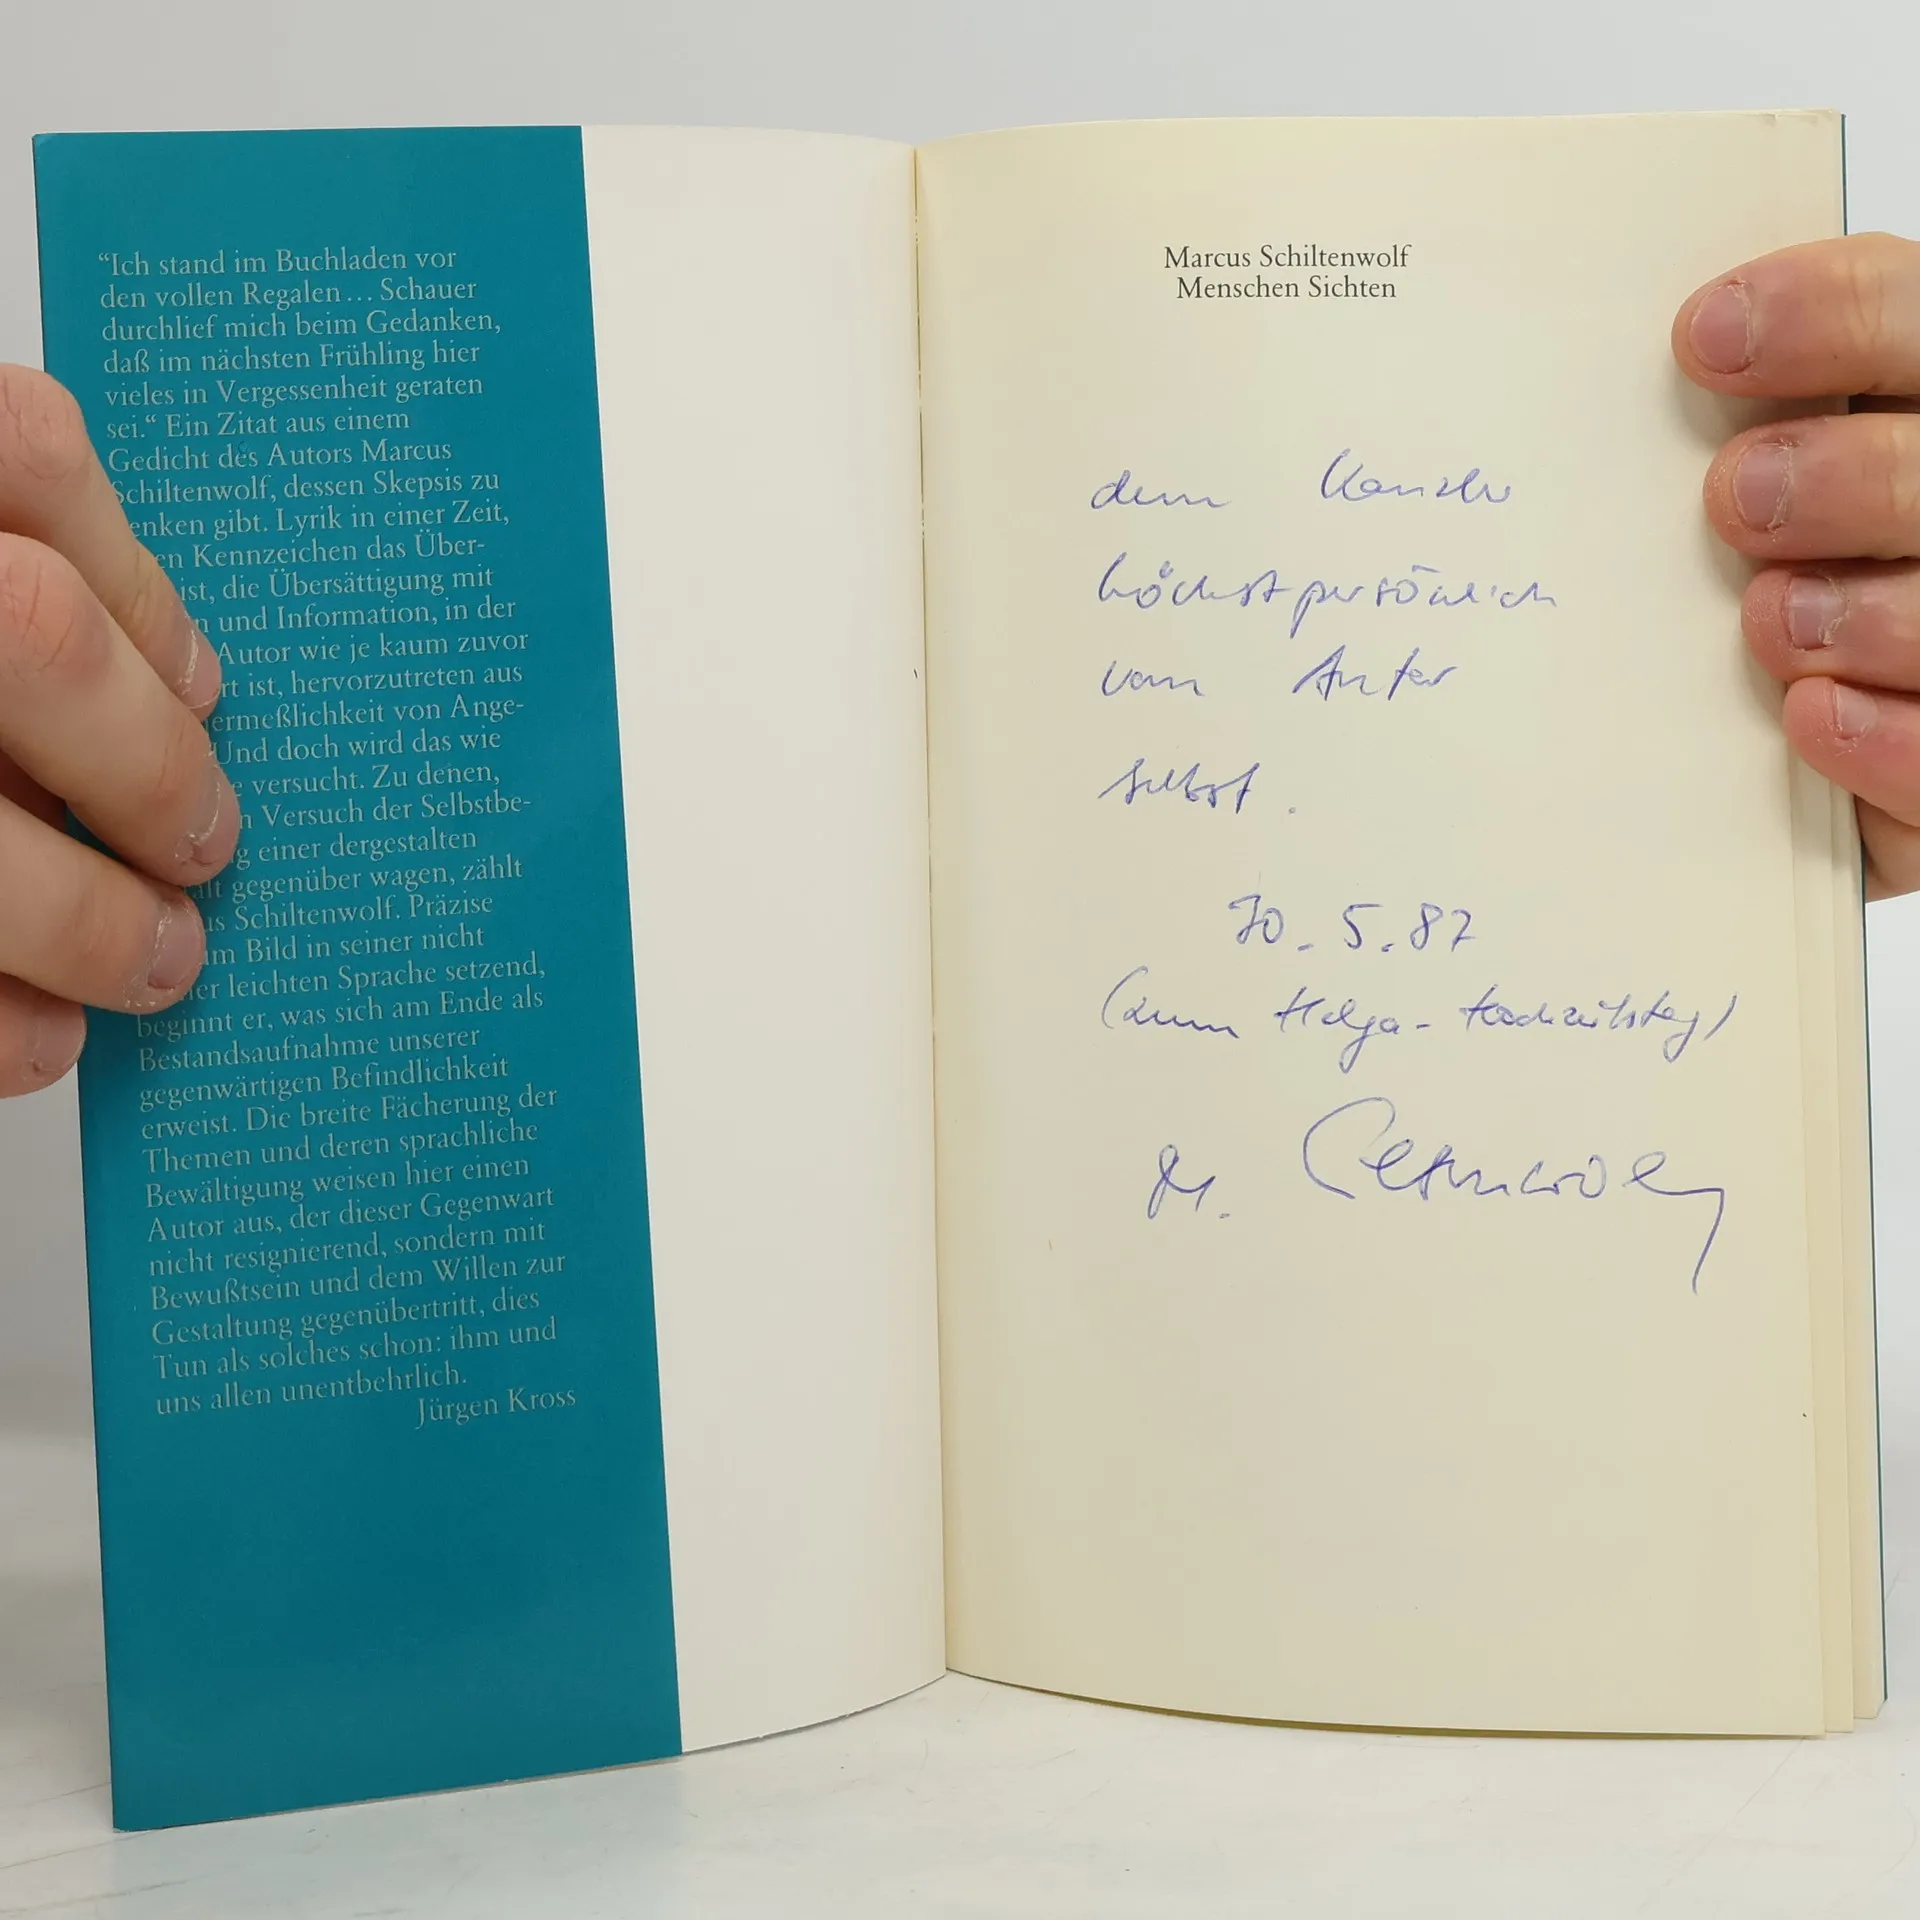 “Ich stand im Buchladen vor
den vollen Regalen... Schauer
durchlief mich beim Gedanken,
daß im nächsten Frühling hier
vieles in Vergessenheit geraten
sei.“ Ein Zitat aus einem
Gedicht des Autors Marcus
Schiltenwolf, dessen Skepsis zu
enken gibt. Lyrik in einer Zeit,
en Kennzeichen das Über-
ist, die Übersättigung mit
n und Information, in der
Autor wie je kaum zuvor
rt ist, hervorzutreten aus
ermeßlichkeit von Ange-
Und doch wird das wie
e versucht. Zu denen,
n Versuch der Selbstbe-
g einer dergestalten
alt gegenüber wagen, zählt
us Schiltenwolf. Präzise
um Bild in seiner nicht
er leichten Sprache setzend,
beginnt er, was sich am Ende als
Bestandsaufnahme unserer
gegenwärtigen Befindlichkeit
erweist. Die breite Fächerung der
Themen und deren sprachliche
Bewältigung weisen hier einen
Autor aus, der dieser Gegenwart
nicht resignierend, sondern mit
Bewußtsein und dem Willen zur
Gestaltung gegenübertritt, dies
Tun als solches schon: ihm und
uns allen unentbehrlich.
Jürgen Kross
Marcus Schiltenwolf
Menschen Sichten
dem Kanzler
höchstpersönlich
vom Autor
selbst.
30.5.87
(zum Helga-Hochzeitstag)
M. Schiltenwolf